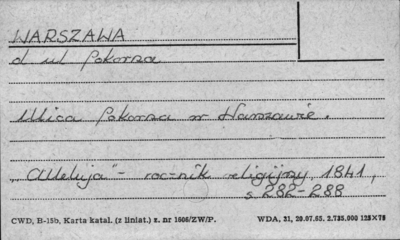 WARSZAWA
d. ul Pokorna
Ulica Pokorna w Warszawie.
„Alleluja" - rocznik religijny, 1841,
s. 282-288
CWD, B-15b, Karta katal. (z liniat.) z. nr 1606/ZW/P. WDA, 31, 20.07.65. 2.735.000 125×75